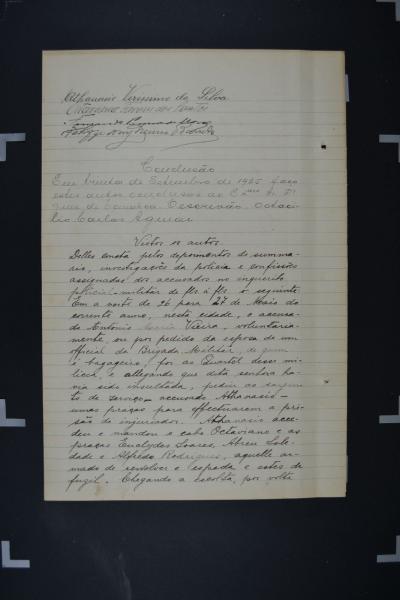 Athanasio Verissimo da Silva
Conclusão
Em trinta de Setembro de 1925 faço
estes autos conclusos ao Exmo Dr.
Juiz de Comarca. Oescrivão, Octaci-
lio Carlos Aguiar
Vistos os autos.
Delles consta pelos depoimentos do summa-
rio, investigações da policia e confissões
assignadas dos accusados no inquerito
policial-militar de fls á fls o seguinte:
Em a noite de 26 para 27 de Maio do
corrente anno, nesta cidade, o accusa-
do Antônio Maria Vieira, voluntaria-
mente, ou por pedido da esposa de um
official da Brigada Militar, de quem
é bagageiro, foi ao Quartel dessa mi-
licia, e allegando que dita senhora ha-
via sido insultada, pediu ao sargen-
to de serviço - accusado Athanasio -
umas praças para effectuarem a pri-
são do injuriador. Athanasio acce-
deu e mandou o cabo Octaviano e as
praças Euclydes Soares, Abreu Sole-
dade e Alfredo Rodrigues, aquelle ar-
mado de revolver e espada e estes de
fuzil. Chegando a escolta, por volta